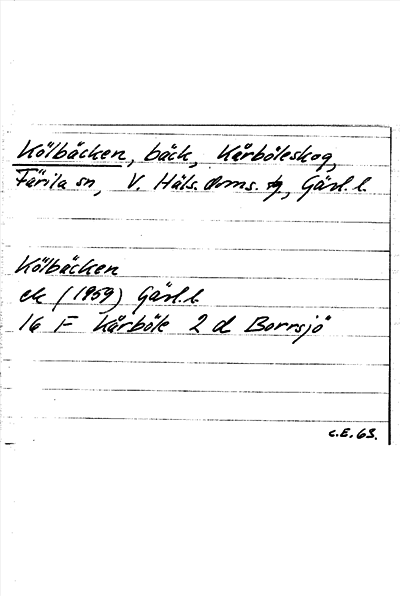 Kölbäcken, bäck, Kårböleskog,
Färila sn, V. Häls. doms. tg, Gävl. l.
Kölbäcken
ek (1959) Gävl. l.
16 F Kårböle 2 d Borrsjö
C.E. 63.